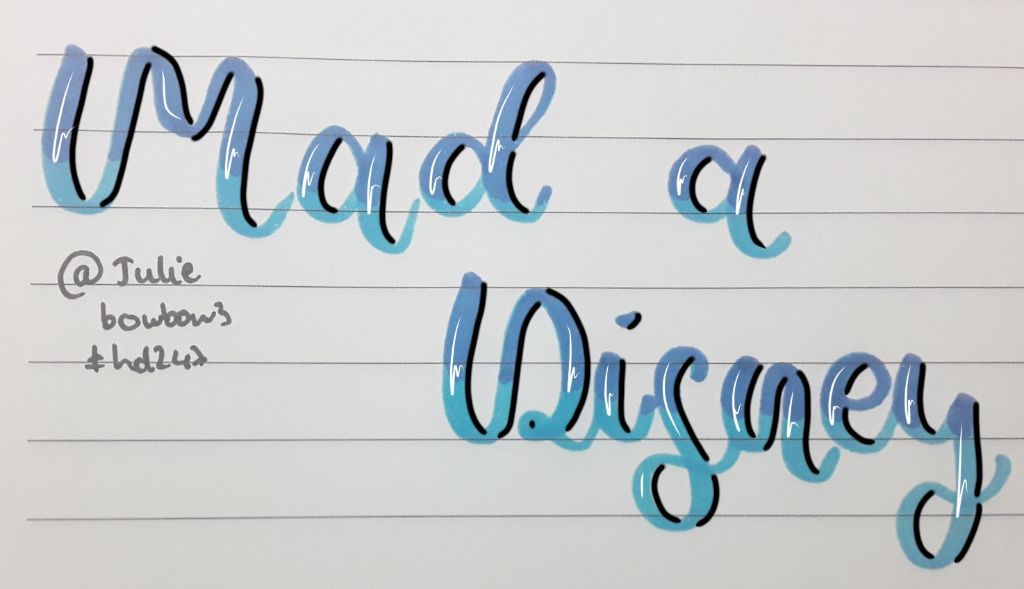 Mad a
Disney
@Julie
bowbow3
#hd247